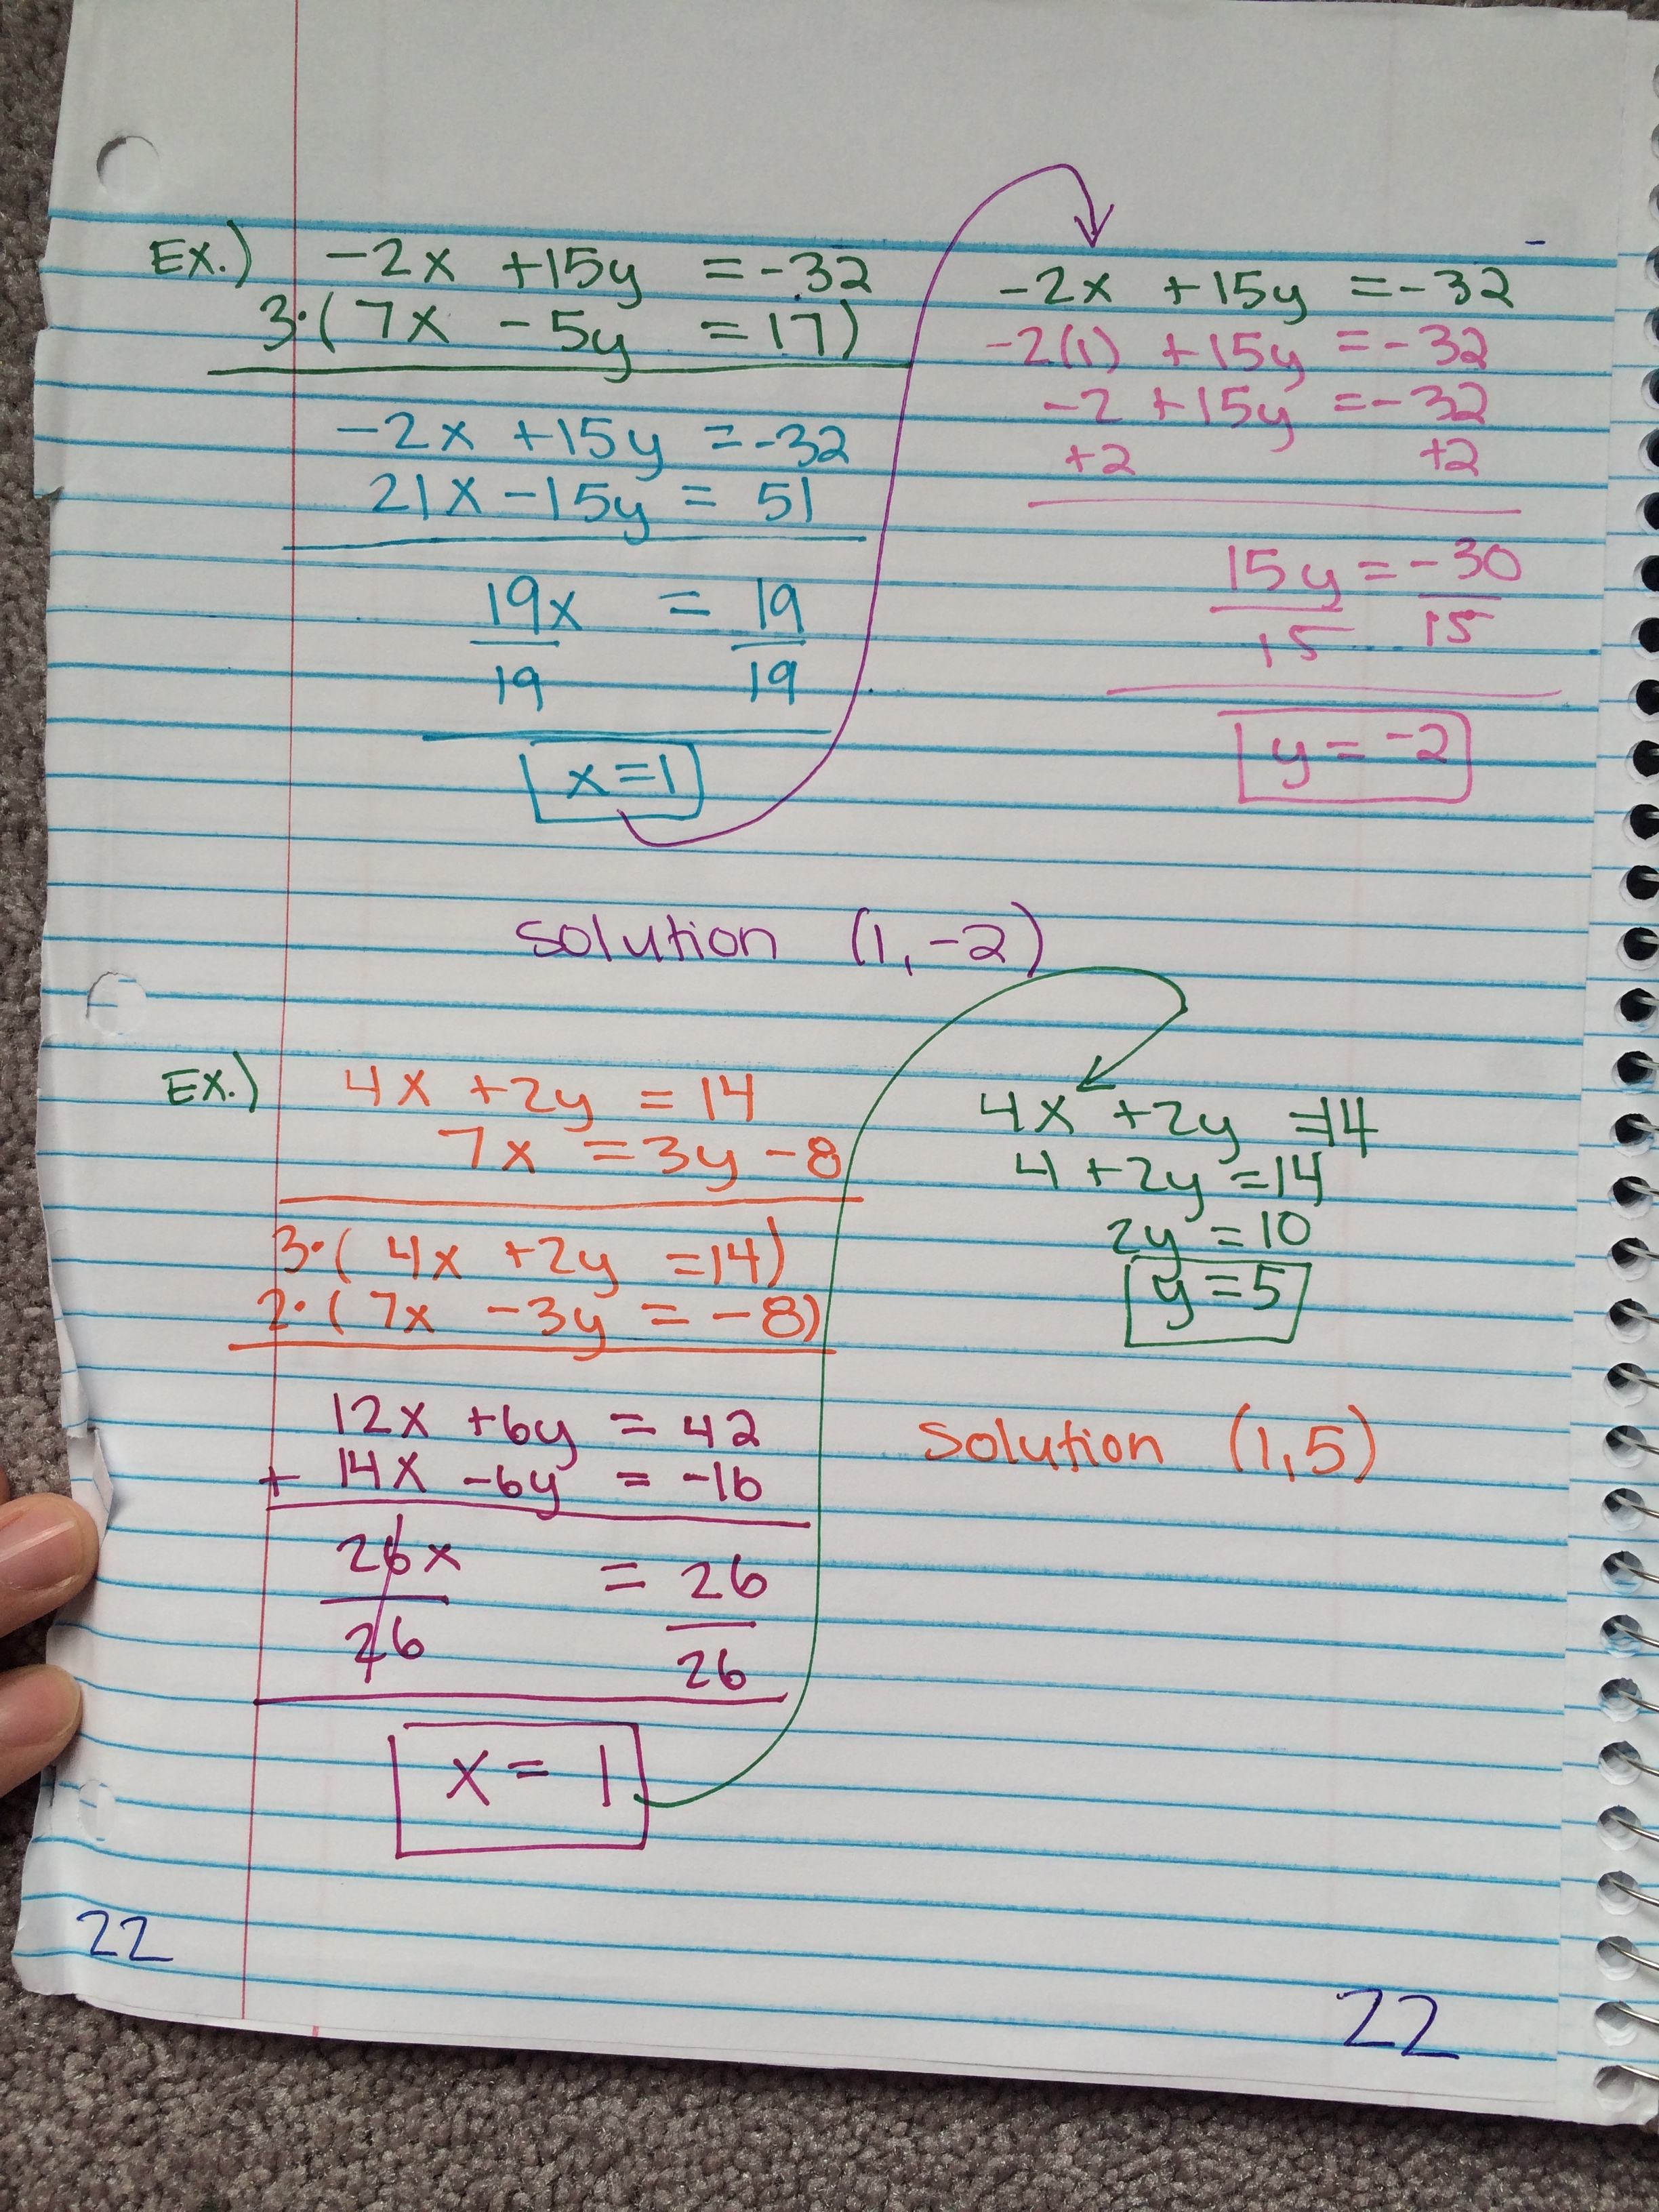 Ex.) -2x +15y = -32
3·( 7x - 5y = 17)
-2x +15y = -32
21x -15y = 51
19x = 19
19 19
x=1
-2x +15y = -32
-2(1) +15y = -32
-2 +15y = -32
+2 +2
15y = -30
15 15
y = -2
solution (1,-2)
Ex.) 4x +2y = 14
7x = 3y - 8
3·( 4x +2y =14)
2·( 7x -3y = -8)
12x +6y = 42
+ 14x -6y = -16
26x = 26
26 26
x = 1
4x +2y =14
4 +2y =14
2y =10
y =5
solution (1,5)
22
22